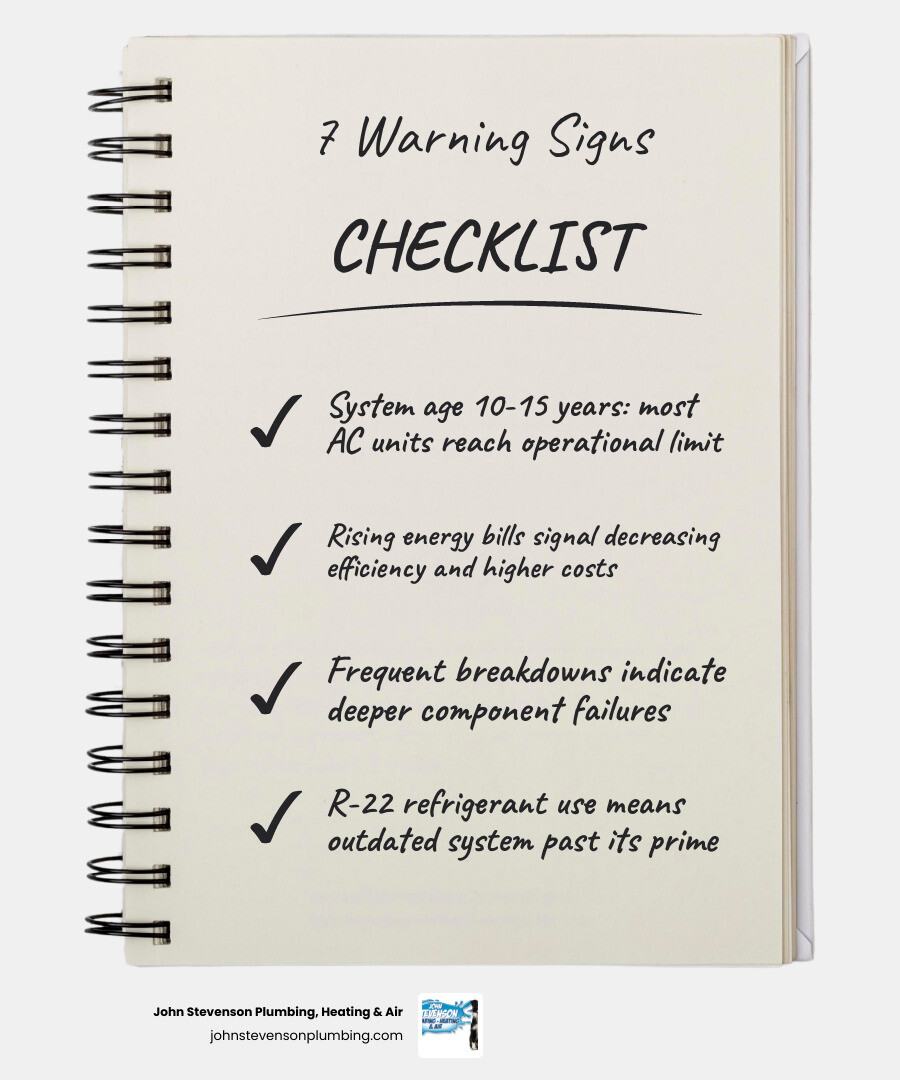 7 Warning Signs
CHECKLIST
System age 10-15 years: most
AC units reach operational limit
Rising energy bills signal decreasing
efficiency and higher costs
Frequent breakdowns indicate
deeper component failures
R-22 refrigerant use means
outdated system past its prime
John Stevenson Plumbing, Heating & Air
johnstevensonplumbing.com
JOHN
STEVENSON
& AIR